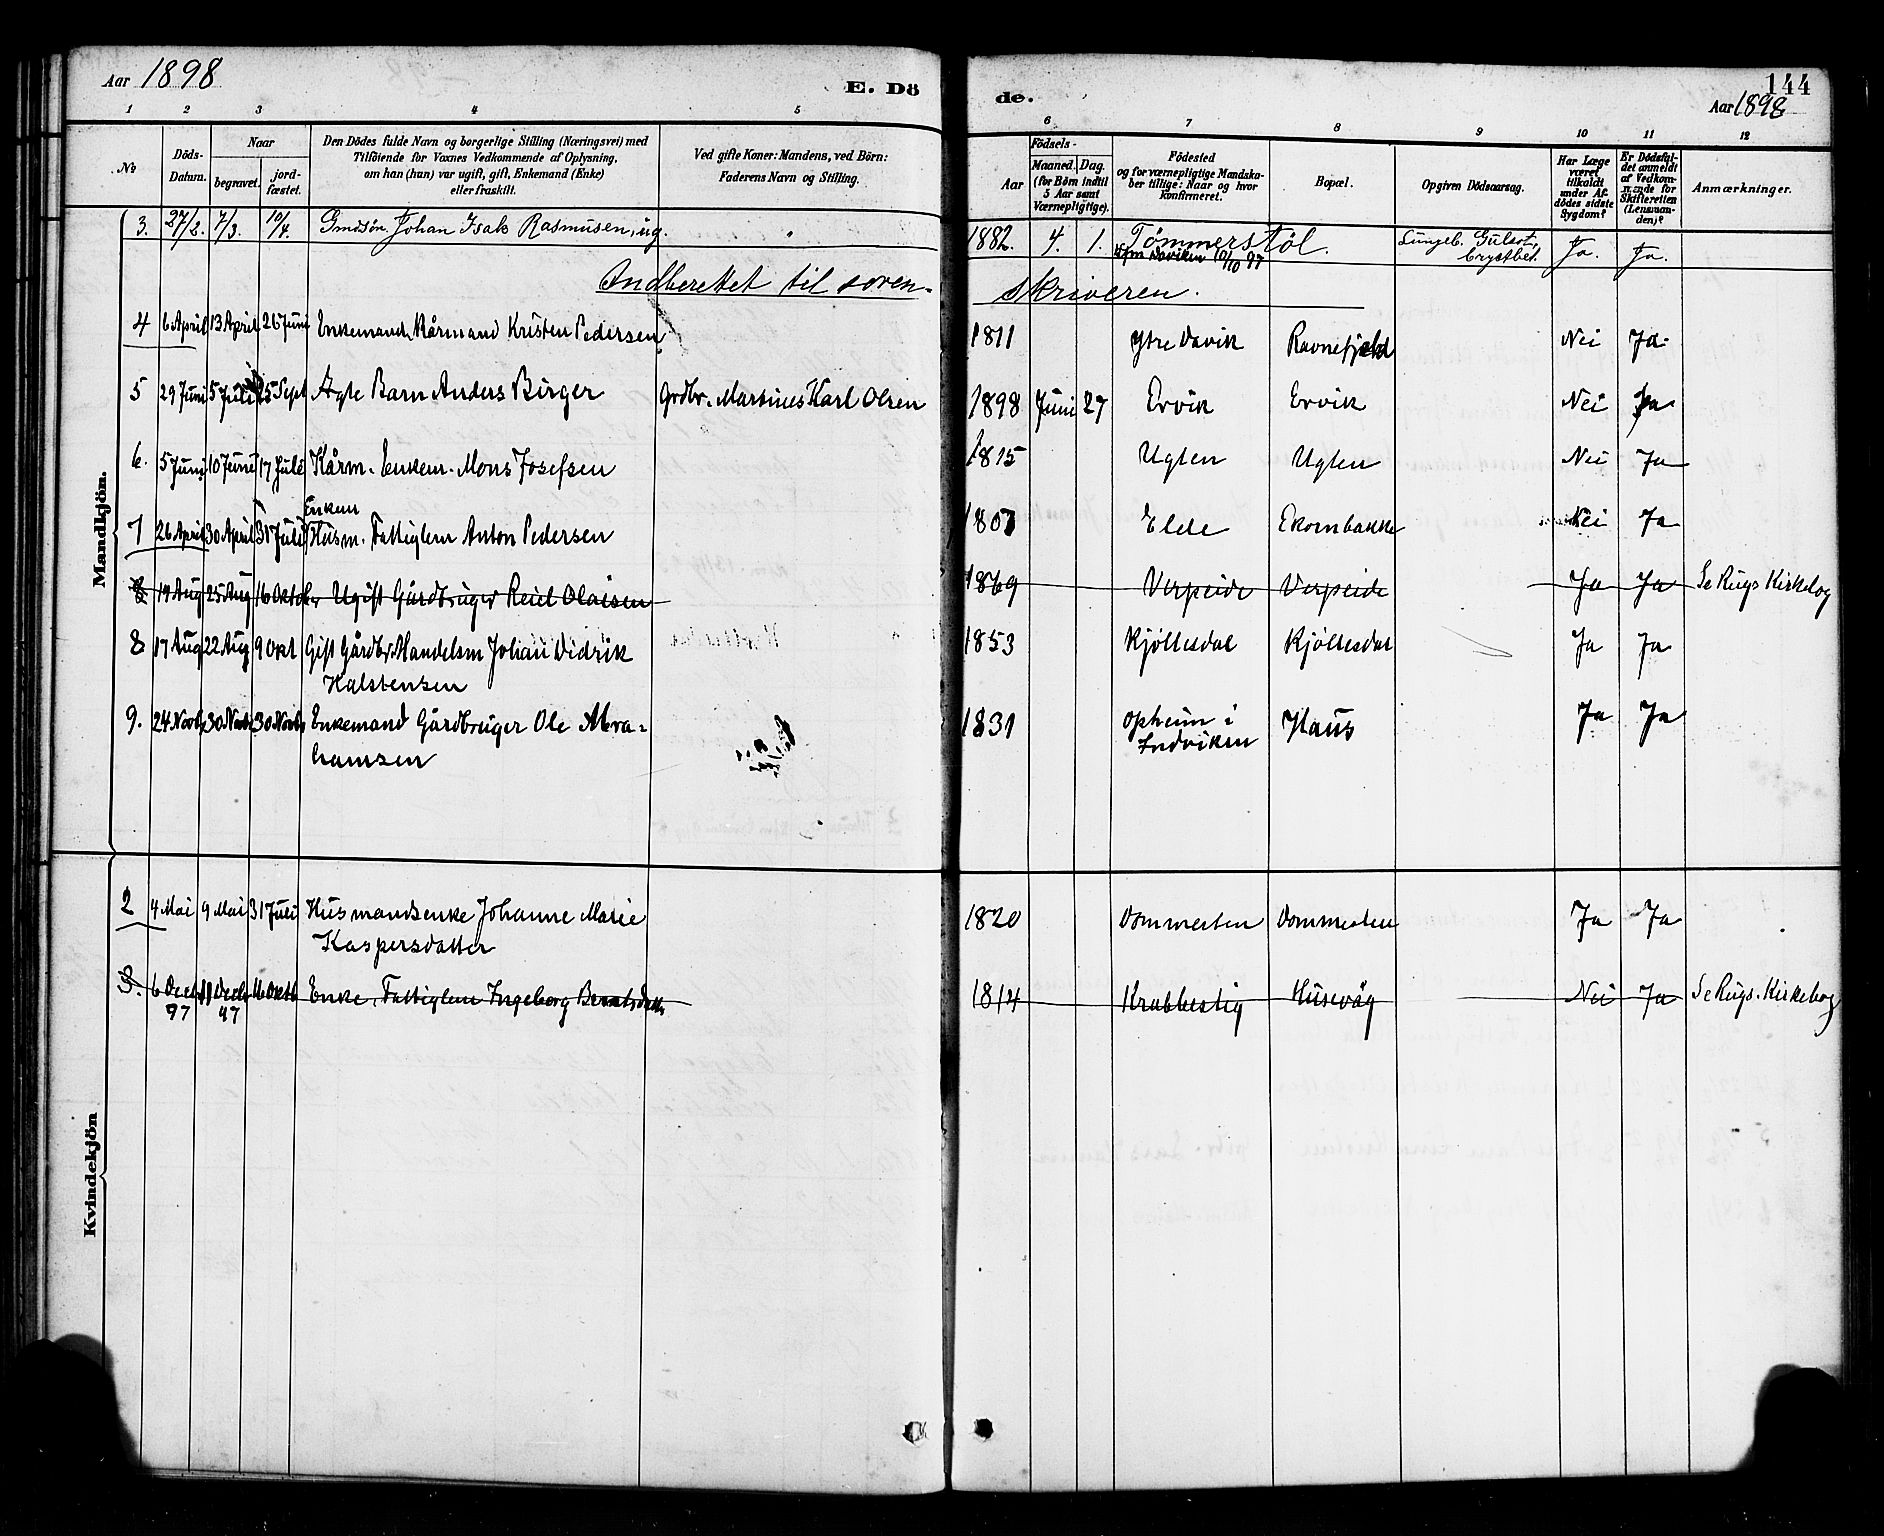 Aar 1898
E. Dö
1 2 3 4 5
№ Döds-Datum. Naar begravet. jord-fæstet. Den Dödes fulde Navn og borgerlige Stilling (Næringsvei) med Tilföiende for Voxnes Vedkommende af Oplysning, om han (hun) var ugift, gift, Enkemand (Enke) eller fraskilt. Ved gifte Koner: Mandens, ved Börn: Faderens Navn og Stilling.
Mandkjön.
3. 27/2. 7/3. 10/4. Gmdsön Johan Isak Rasmusen, ug. "
Indberettet til soren-
4 6 April 13 April 26 Juni Enkemand Kårmand Kristen Pedersen
5 29 Juni 5 Juli 25 Sept Ægte Barn Anders Birger Grdbr. Martinus Karl Olsen
6. 5 Juni 10 Juni 17 Juli Kårm. Enkem. Mons Josefsen
Enkem
7 26 April 30 April 31 Juli Husm. Fattiglem Anton Pedersen
8 19 Aug 25 Aug 16 Oktober Ugift Gårdbruger Reiel Olaisen
8 17 Aug 22 Aug 9 Okt Gift Gårdbr. Handelsm Johan Didrik
Kalstensen
9. 24 Novb 30 Novb 30 Novb Enkemand Gårdbruger Ole Abra=
hamsen
Kvindekjön
2 4 Mai 9 Mai 31 Juli Husmandsenke Johanne Marie
Kaspersdatter
3. 6 Decb 11 Decb 16 Oktb Enke, Fattiglem Ingeborg Berntsdatt
97 97
de.
144
Aar 1898
6 7 8 9 10 11 12
Födsels- Aar Maaned. Dag. (for Börn indtil 5 Aar samt Værnepligtige). Födested og for værnepligtige Mandska-ber tillige: Naar og hvor konfirmeret. Bopæl. Opgiven Dödsaarsag. Har Læge været tilkaldt under Af-dödes sidste Sygdom? Er Dödsfal-det anmeldt af Vedkom-mende for Skifteretten (Lensman-den)? Anmærkninger.
1882. 4. 1. Tömmerstöl. Lungeb. Gulsot, Ja. Ja.
Daviken 10/10 97 brystbet.
skriveren.
1811 Ytre Davik Ravnefjeld Nei Ja
1898 Juni 27 Ervik Ervik Nei Ja
1815 Ugten Ugten Nei Ja
1807 Elde Ekornbakke Nei Ja
1869 Verpeide Verpeide Ja Ja Se Rugs Kirkebog
1853 Kjöllesdal Kjöllesdal Ja Ja
1831 Opheim i Haus Ja Ja
Indviken
1820 Dommesten Dommesten Ja Ja
1814 Krabbestig Husevåg Nei Ja Se Rugs. Kirkebog